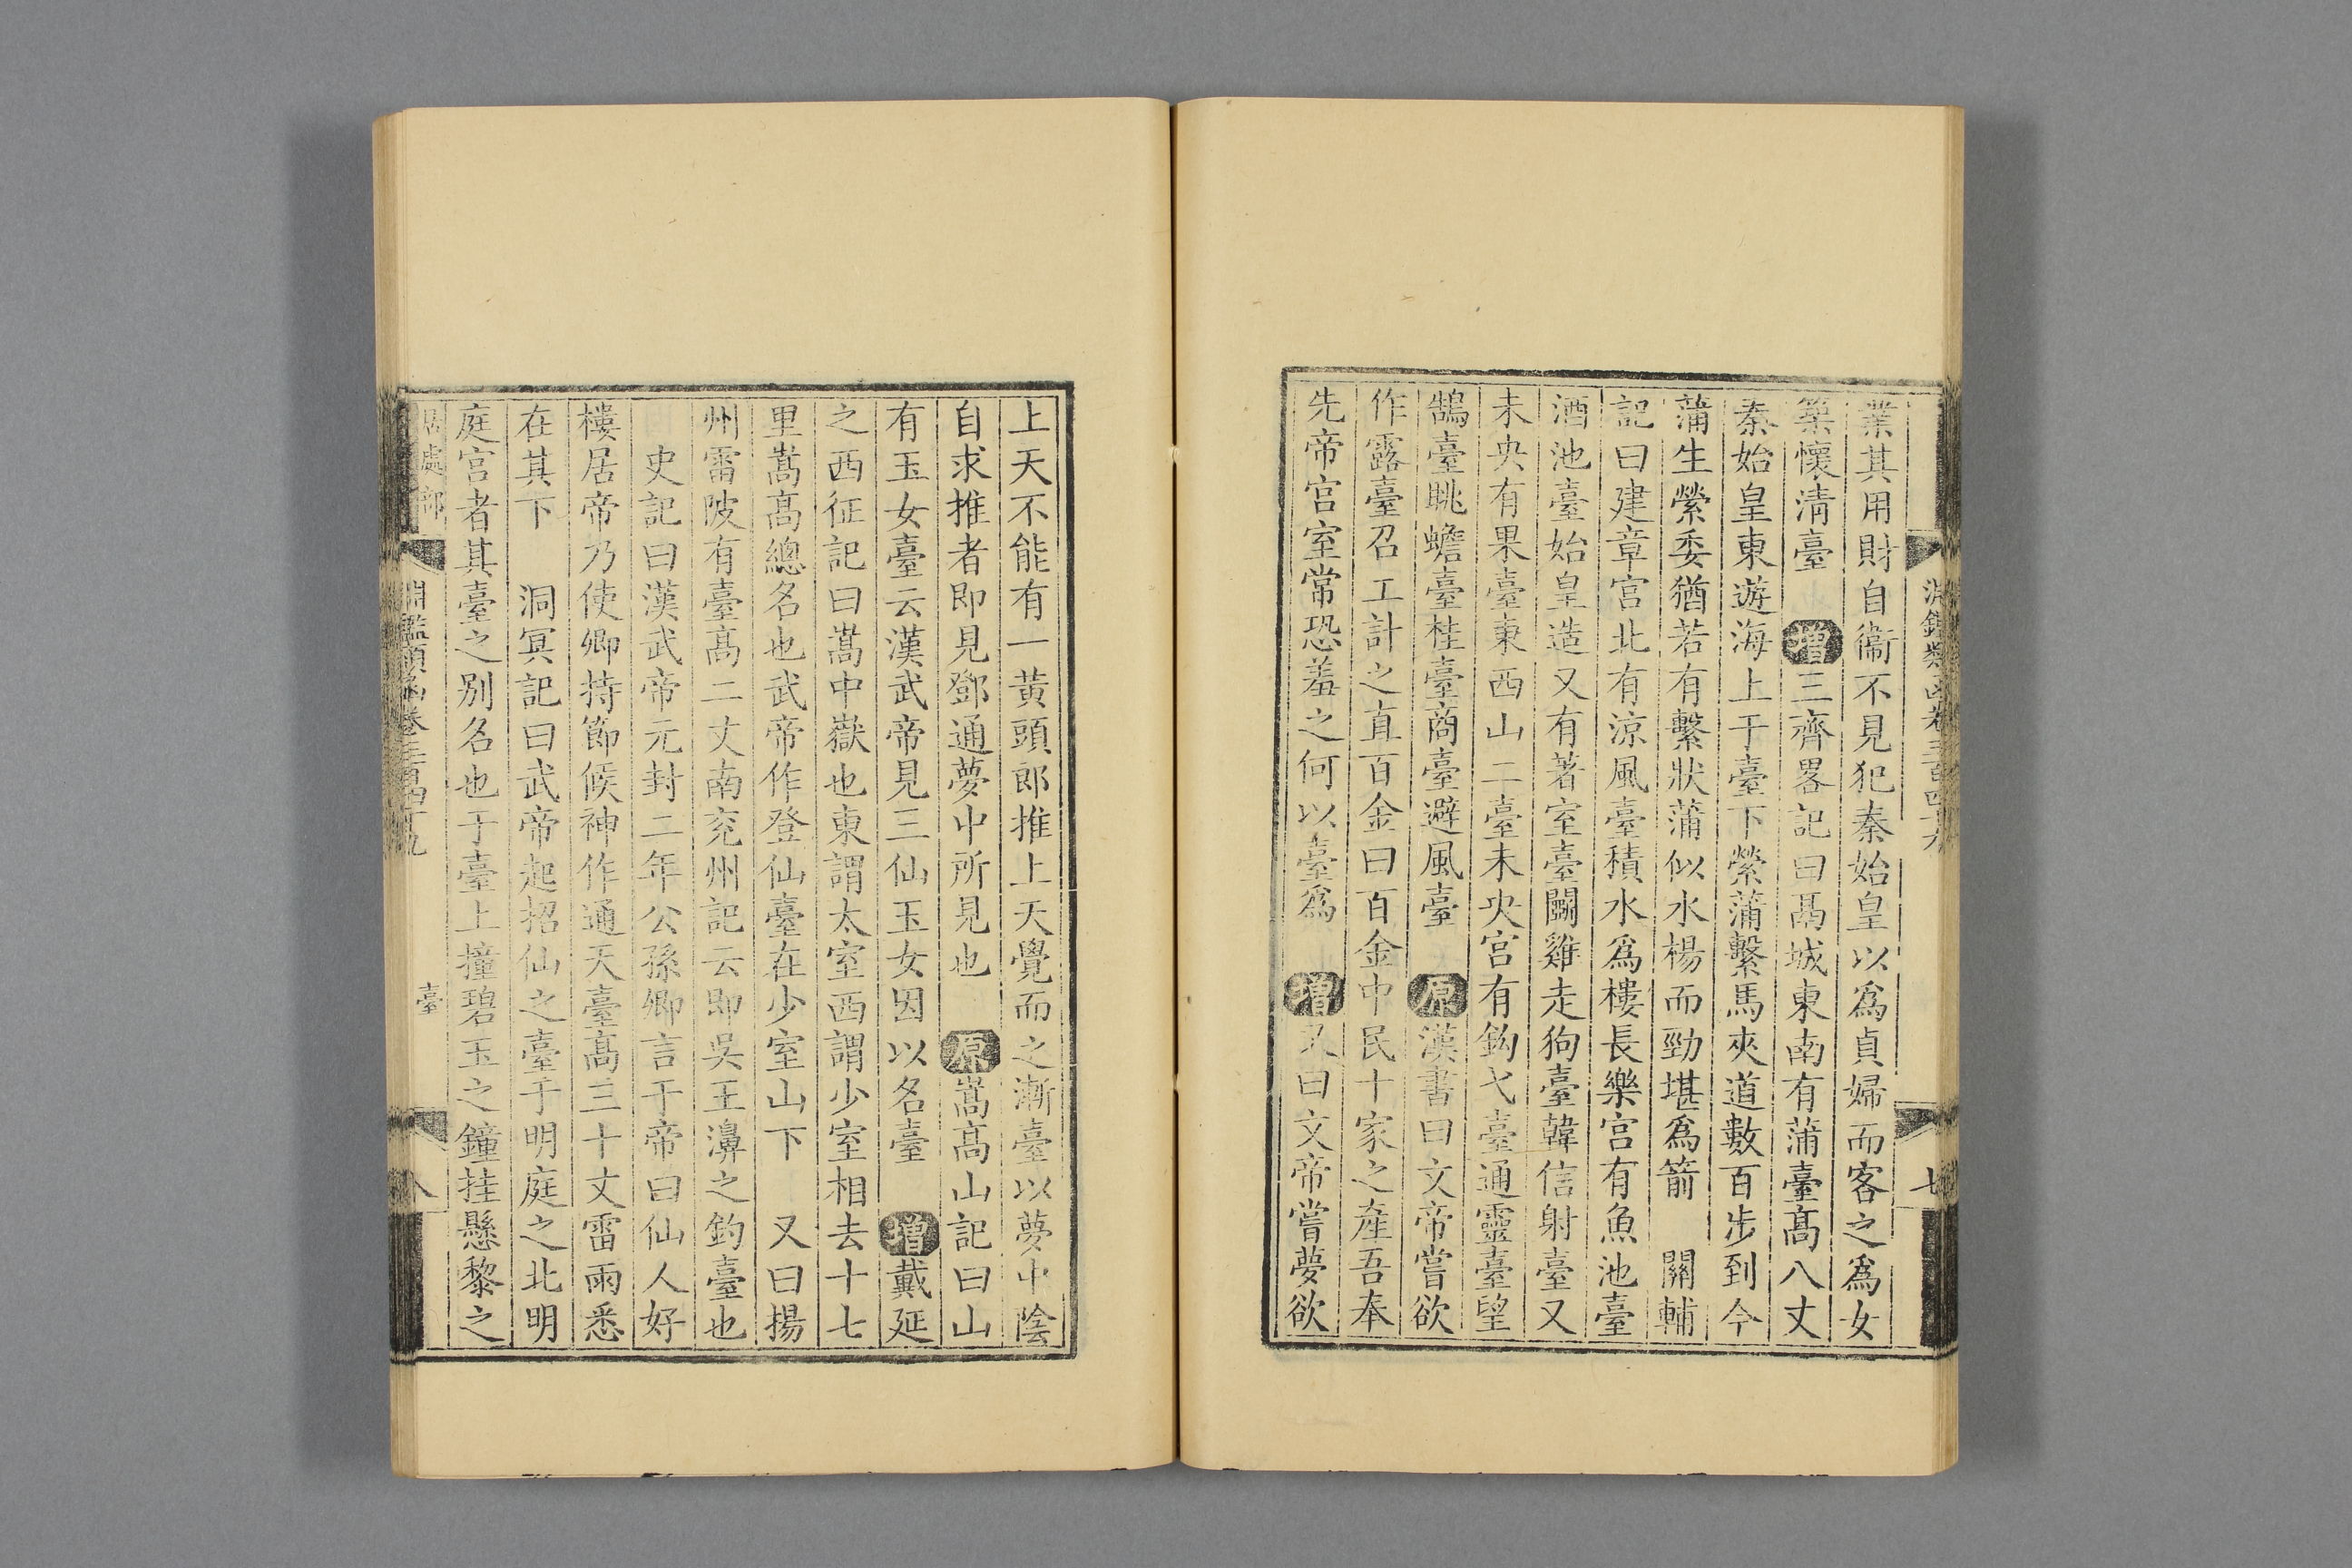 淵鑑類函卷三百四十九
七
業其用財自衞不見犯秦始皇以爲貞婦而客之爲女
築懷清臺 增三齊畧記曰鬲城東南有蒲臺高八丈
秦始皇東遊海上于臺下縈蒲繫馬夾道數百步到今
蒲生縈委猶若有繫狀蒲似水楊而勁堪爲箭 關輔
記曰建章宮北有涼風臺積水爲樓長樂宮有魚池臺
酒池臺始皇造又有著室臺鬭雞走狗臺韓信射臺又
未央有果臺東西山二臺未央宮有鈎弋臺通靈臺望
鵠臺眺蟾臺桂臺商臺避風臺 原漢書曰文帝嘗欲
作露臺召工計之直百金曰百金中民十家之產吾奉
先帝宮室常恐羞之何以臺爲 增又曰文帝嘗夢欲
上天不能有一黃頭郎推上天覺而之漸臺以夢中陰
自求推者即見鄧通夢中所見也 原嵩高山記曰山
有玉女臺云漢武帝見三仙玉女因以名臺 增戴延
之西征記曰嵩中嶽也東謂太室西謂少室相去十七
里嵩高總名也武帝作登仙臺在少室山下 又曰揚
州雷陂有臺高二丈南兗州記云即吳王濞之釣臺也
史記曰漢武帝元封二年公孫卿言于帝曰仙人好
樓居帝乃使卿持節候神作通天臺高三十丈雷雨悉
在其下 洞冥記曰武帝起招仙之臺于明庭之北明
庭宮者其臺之別名也于臺上撞碧玉之鐘挂懸黎之
居處部 淵鑑類函卷三百四十九 臺 八